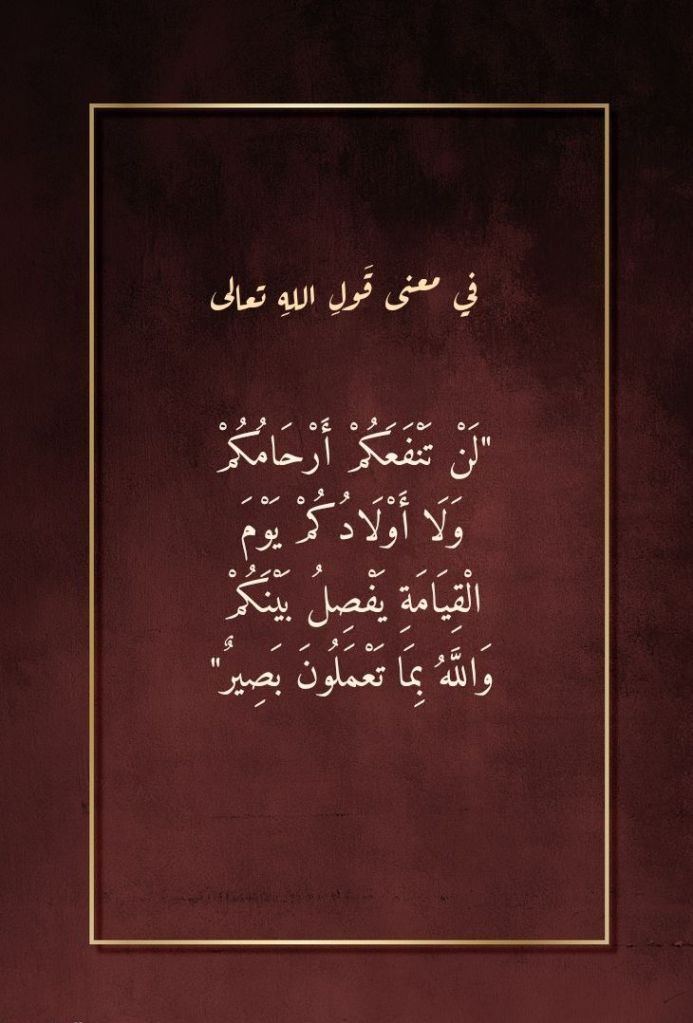 في معنى قَولِ اللهِ تعالى
"لَنْ تَنْفَعَكُمْ أَرْحَامُكُمْ
وَلَا أَوْلَادُكُمْ يَوْمَ
الْقِيَامَةِ يَفْصِلُ بَيْنَكُمْ
وَاللَّهُ بِمَا تَعْمَلُونَ بَصِيرٌ"